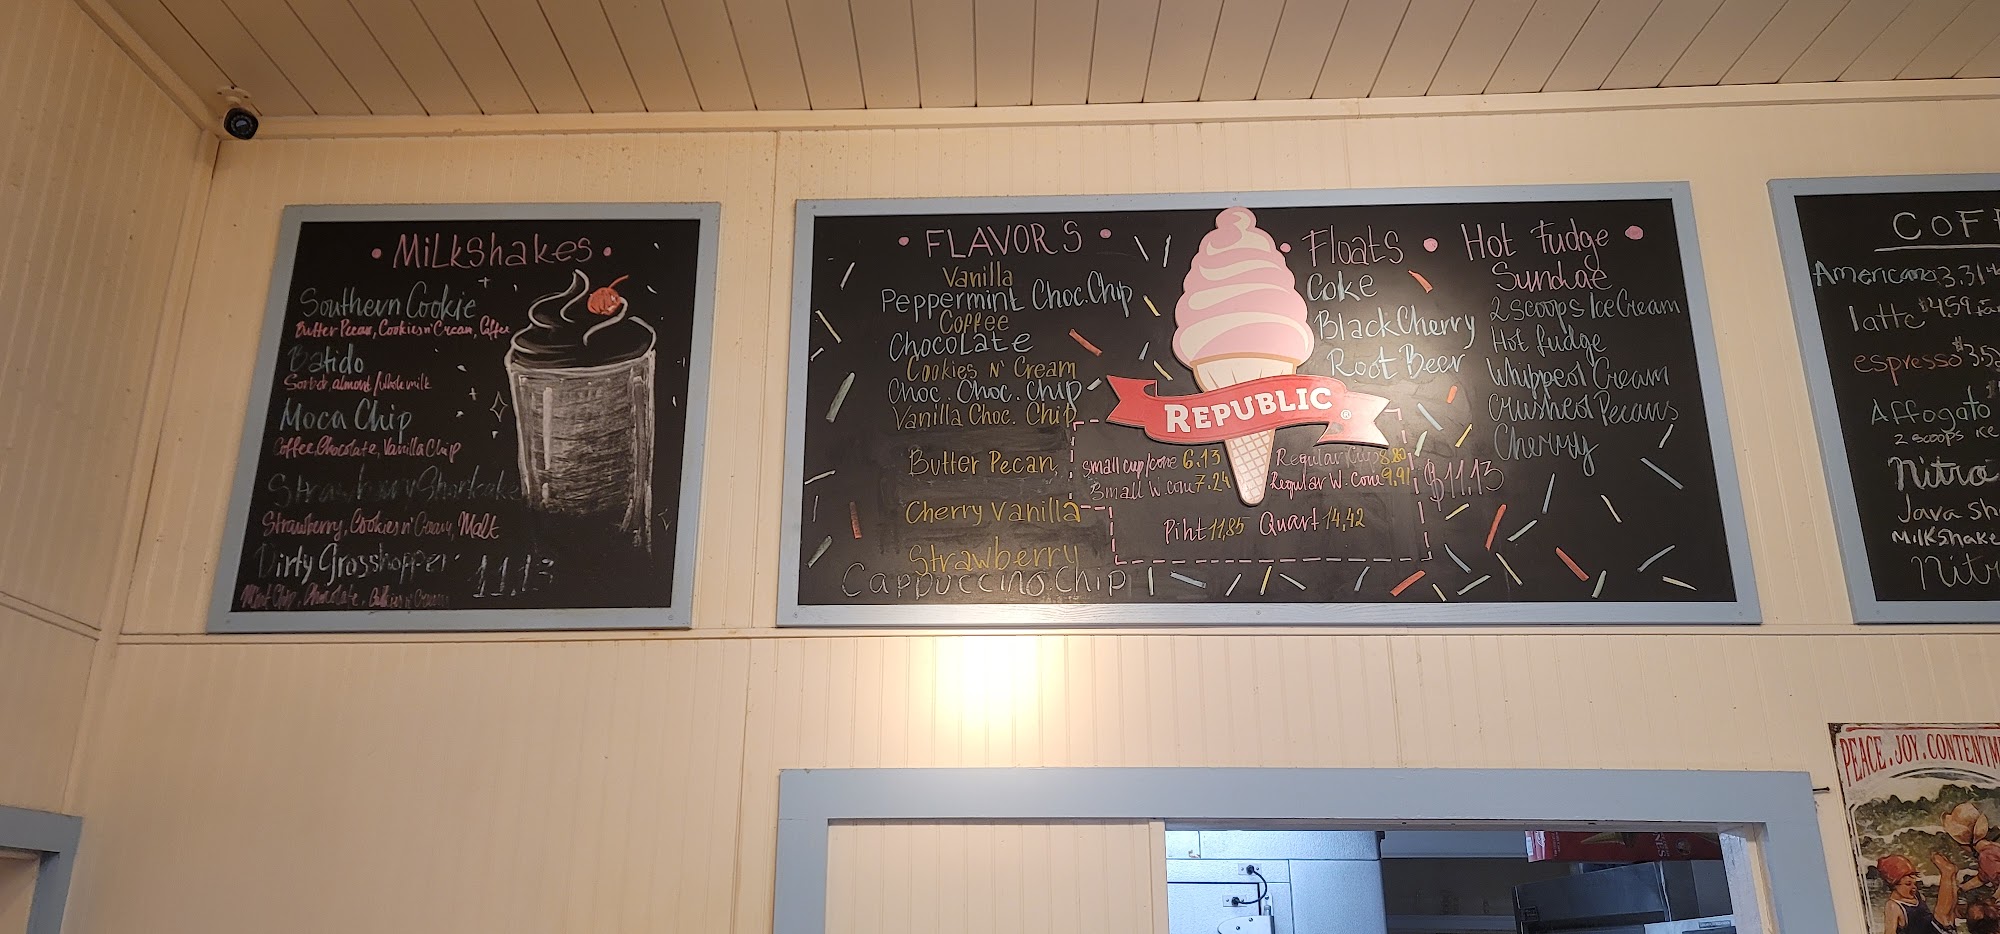 • Milkshakes •
Southern Cookie
Butter Pecan, Cookies n' Cream, Coffee
Batido
Sorbet, almond/whole milk
Moca Chip
Coffee, Chocolate, Vanilla Chip
Strawberry
Strawberry, Cookies n' Cream, Malt
Dirty Grasshopper
11.13
Mint Chip, Chocolate, Cookies n' Cream
• FLAVOR'S •
Vanilla
Peppermint Choc. Chip
Coffee
Chocolate
Cookies N' Cream
Choc. Choc. Chip
Vanilla Choc. Chip
Butter Pecan
Cherry Vanilla
Strawberry
Cappuccino Chip
REPUBLIC ®
small cup/cone 6.13
Small w. cone 7.24
Regular Cup 8.80
Regular w. cone 9.91
Piht 11,85 Quart 14,42
• Floats •
Coke
Black Cherry
Root Beer
Hot Fudge •
Sundae
2 scoops Ice Cream
Hot fudge
Whipped Cream
Crushed Pecans
Cherry
$11.13
COFF
Americano 3.31
latte $4.59
espresso $3.5
Affogato
2 scoops ice
Nitro
Java Sh
Milkshake
Nitr
PEACE. JOY. CONTENTM